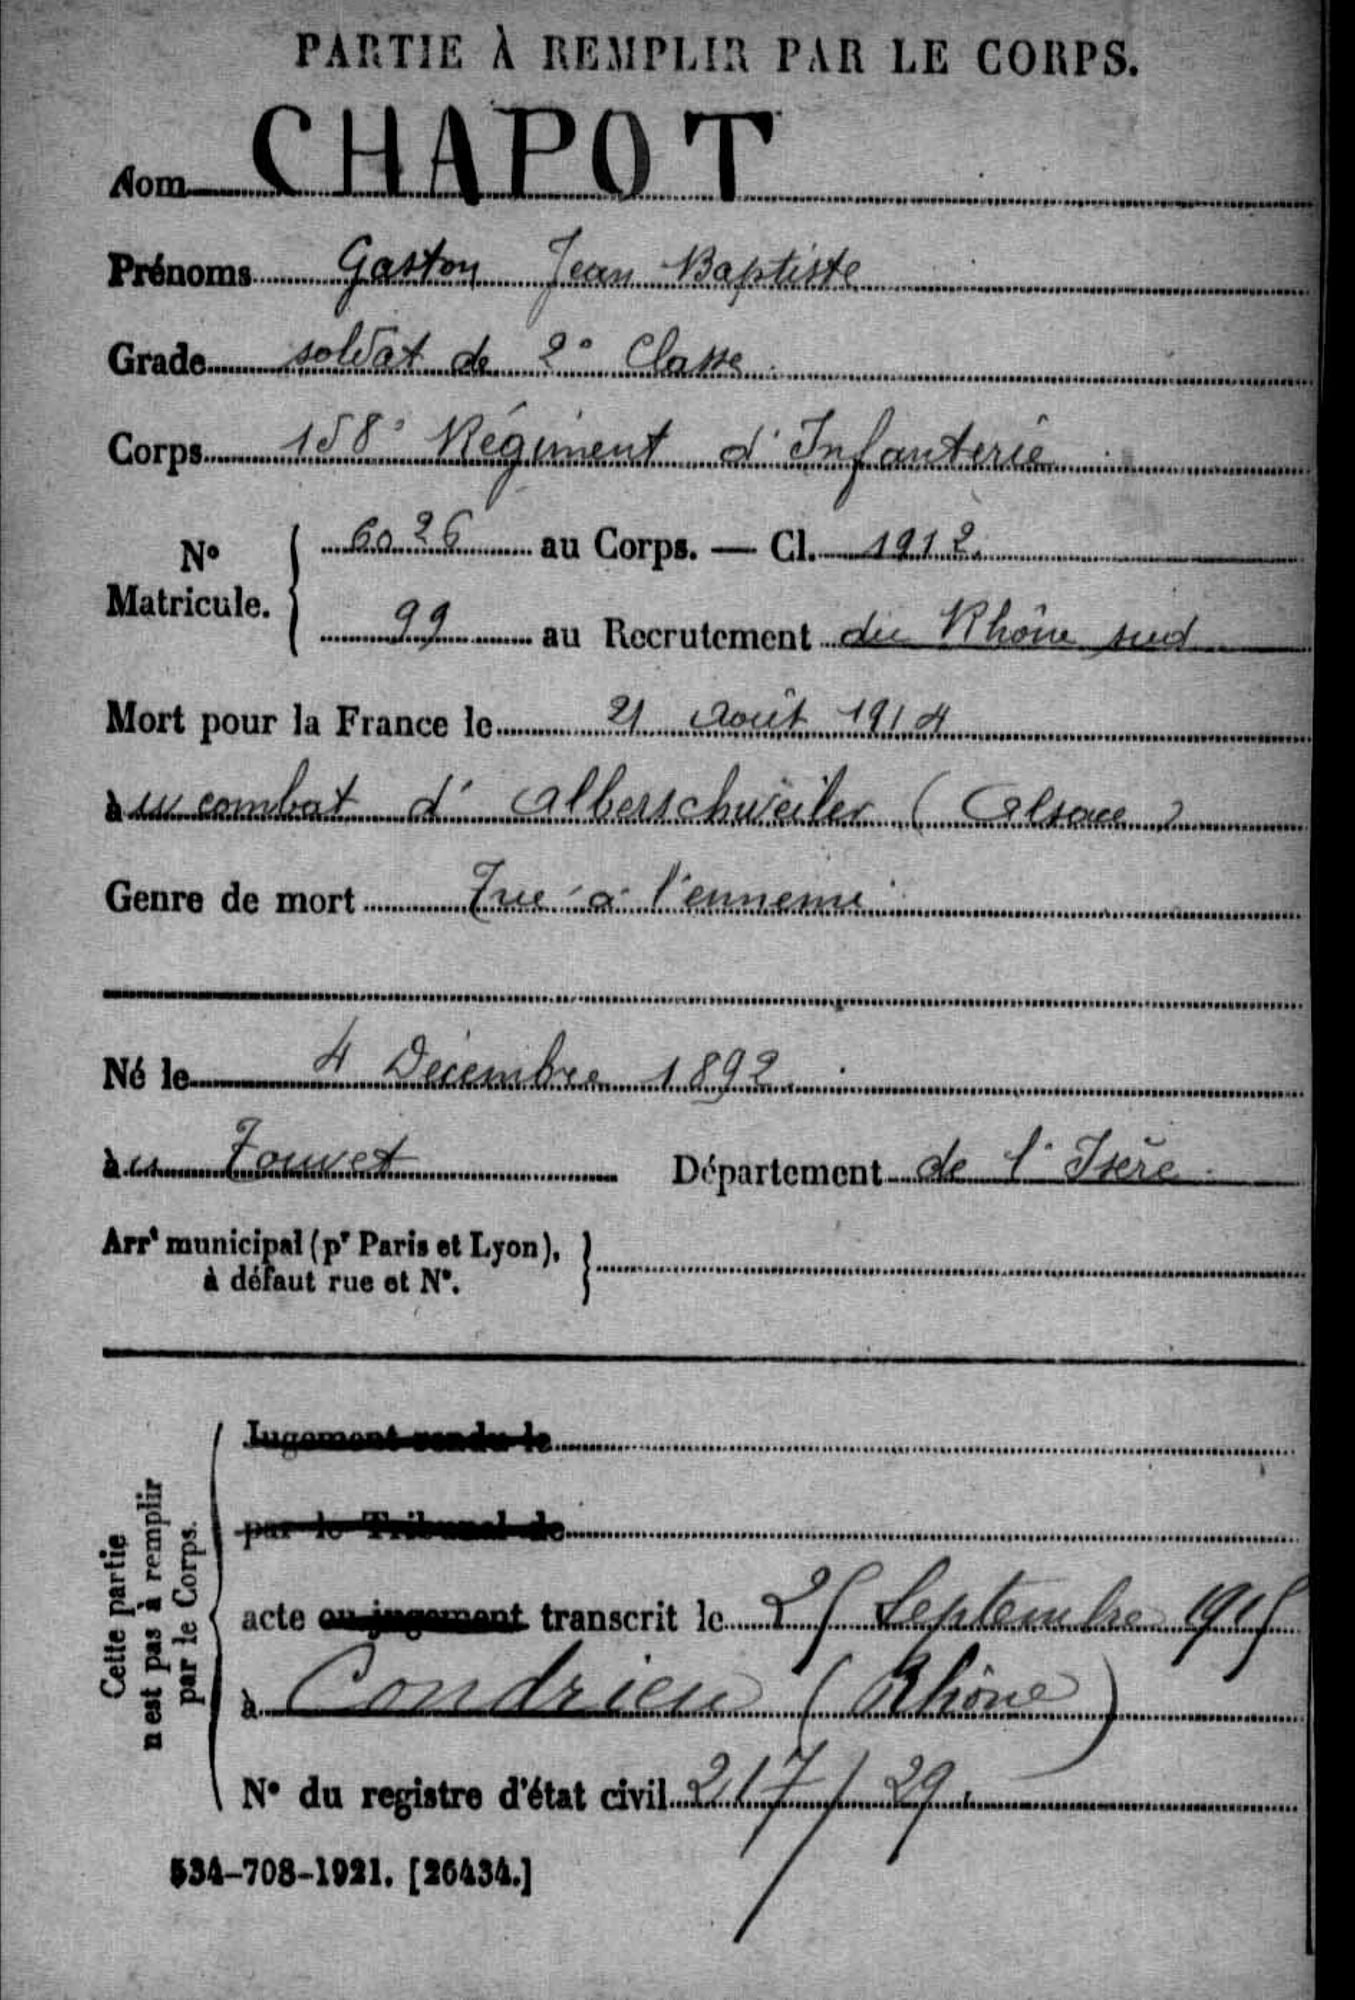 PARTIE À REMPLIR PAR LE CORPS.
Nom CHAPOT
Prénoms Gaston Jean Baptiste
Grade soldat de 2e Classe
Corps 158e Régiment d'Infanterie
N° Matricule. { 6026 au Corps. — Cl. 1912.
99 au Recrutement du Rhône sud
Mort pour la France le 21 Août 1914
au combat d'Alberschweiler (Alsace)
Genre de mort Tué à l'ennemi
Né le 4 Décembre 1892
au Touvet Département de l'Isère
Arrt municipal (pr Paris et Lyon), }
à défaut rue et N°.
Cette partie
n'est pas à remplir
par le Corps.
Jugement rendu le
par le Tribunal de
acte ou jugement transcrit le 25 Septembre 1915
à Condrieu (Rhône)
N° du registre d'état civil 217/29.
534-708-1921. [26434.]